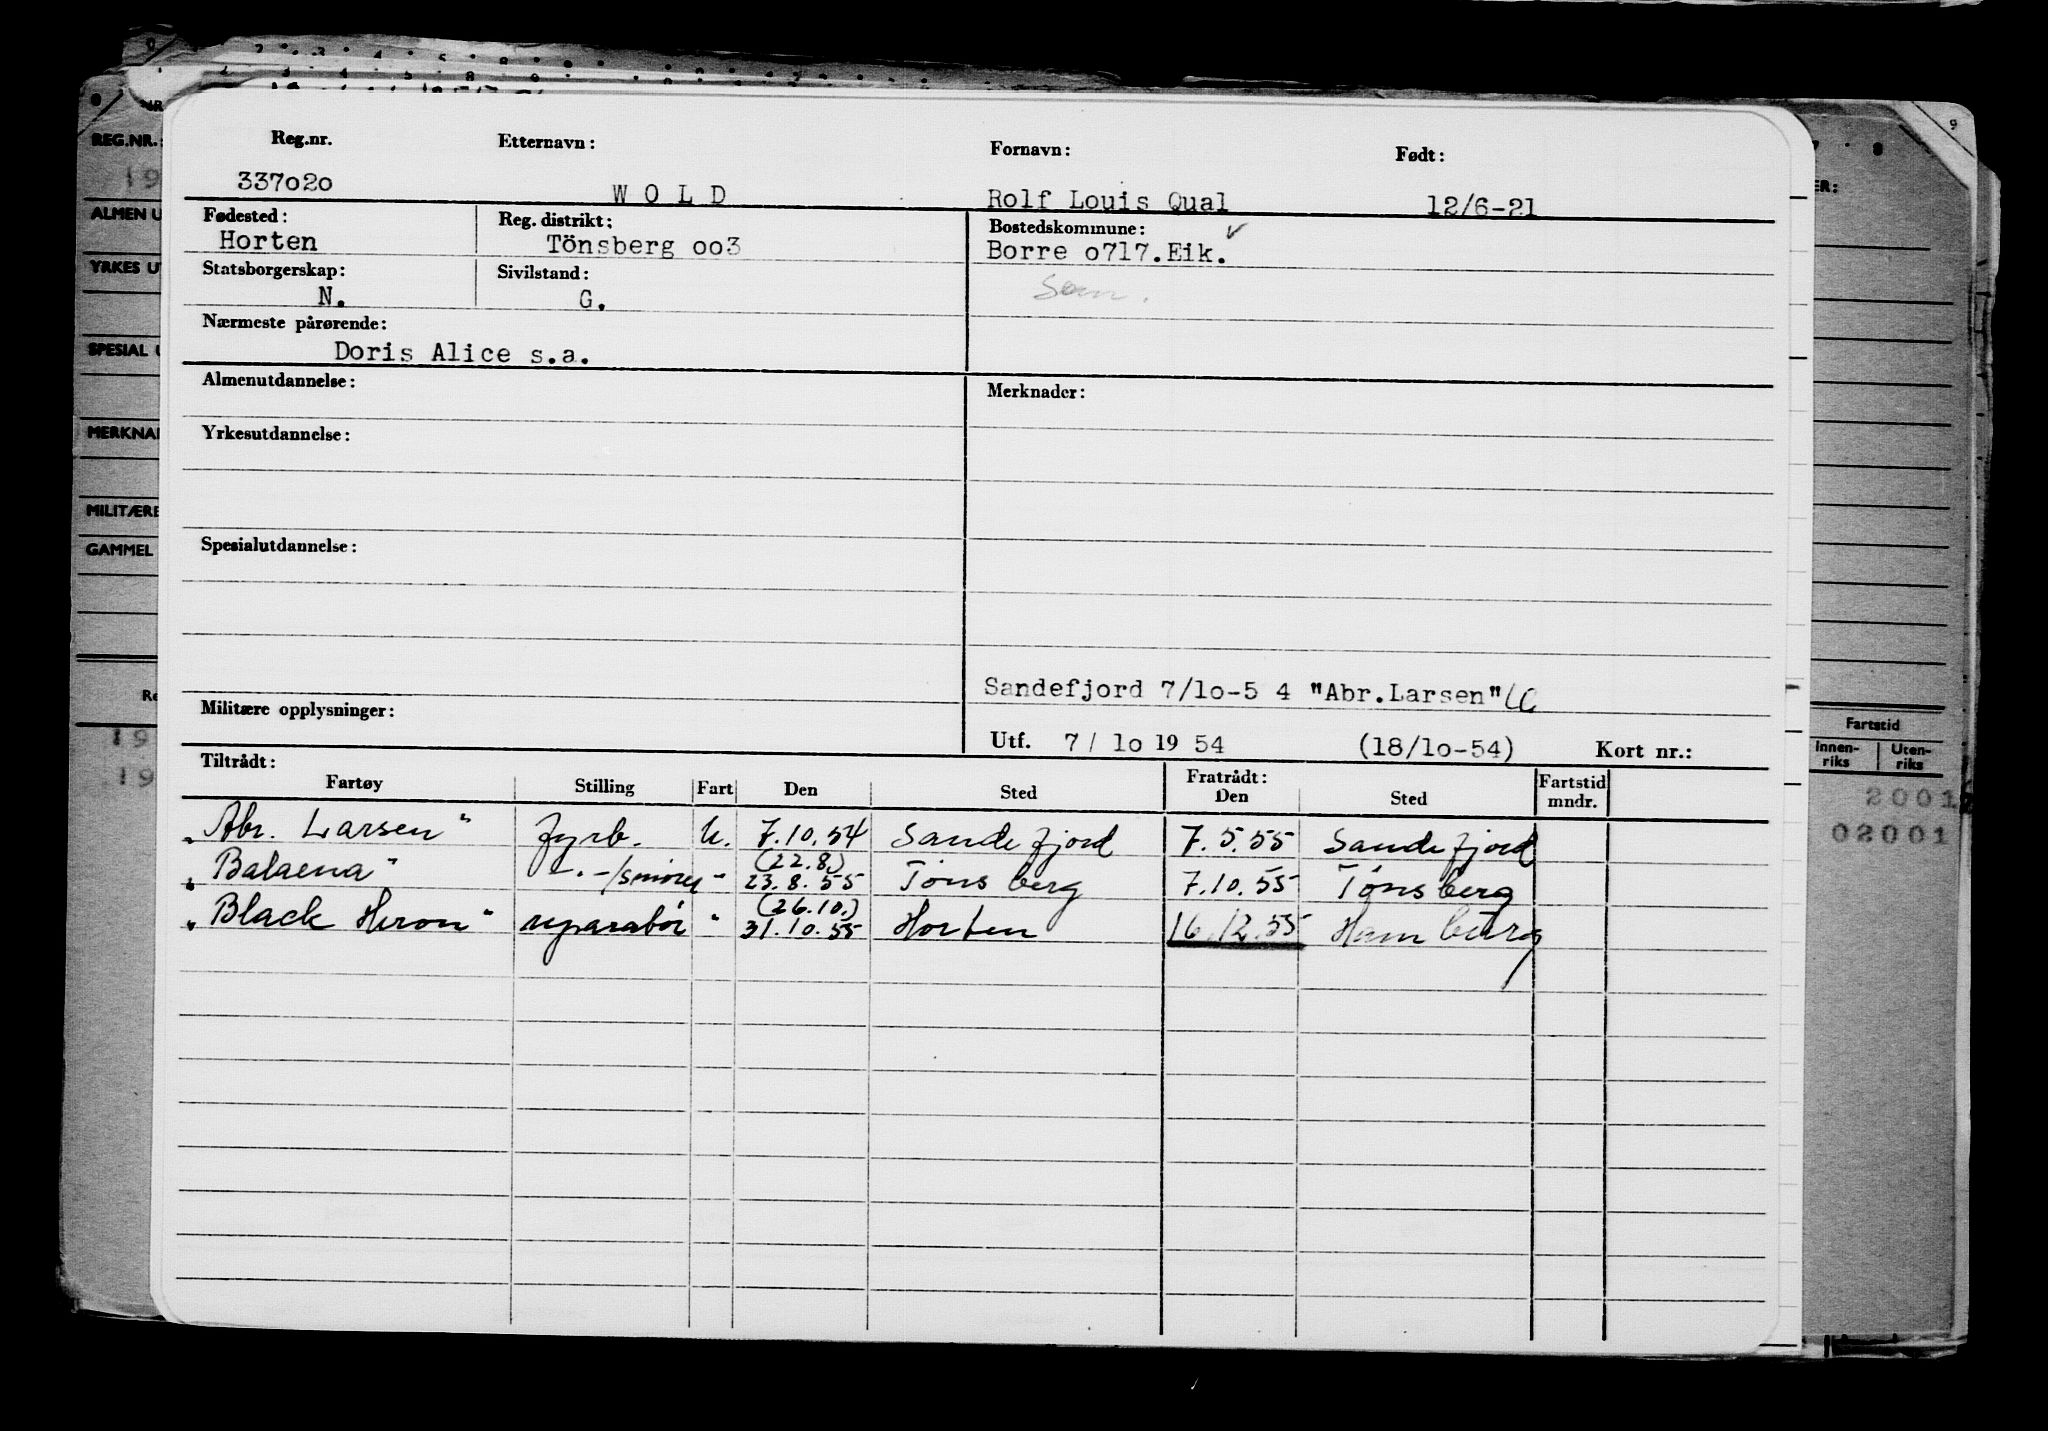 Reg.nr. Etternavn: Fornavn: Født:
337020 W O L D Rolf Louis Qual 12/6-21
Fødested: Reg. distrikt: Bostedskommune:
Horten Tönsberg oo3 Borre o717.Eik.
Statsborgerskap: Sivilstand:
N. G.
Nærmeste pårørende:
Doris Alice s.a.
Almenutdannelse: Merknader:
Yrkesutdannelse:
Spesialutdannelse:
Sandefjord 7/lo-5 4 "Abr.Larsen"
Militære opplysninger:
Utf. 7/ lo 19 54 (18/lo-54) Kort nr.:
Tiltrådt: Fratrådt:
Fartøy Stilling Fart Den Sted Den Sted Fartstid mndr.
"Abr. Larsen" fyrb. U. 7.10.54 Sandefjord 7.5.55 Sandefjord
(22.8)
"Balaena" -.-/smører " 23.8.55 Tønsberg 7.10.55 Tønsberg
(26.10.)
"Black Heron" reparatør " 31.10.55 Horten 16.12.55 Hamburg
REG.NR.:
19
ALMEN U
YRKES UT
SPESIAL U
MERKNA
MILITÆRE
GAMMEL
Re
19
19
9
8
ER:
Fartstid
Innen-riks Uten-riks
2001
02001